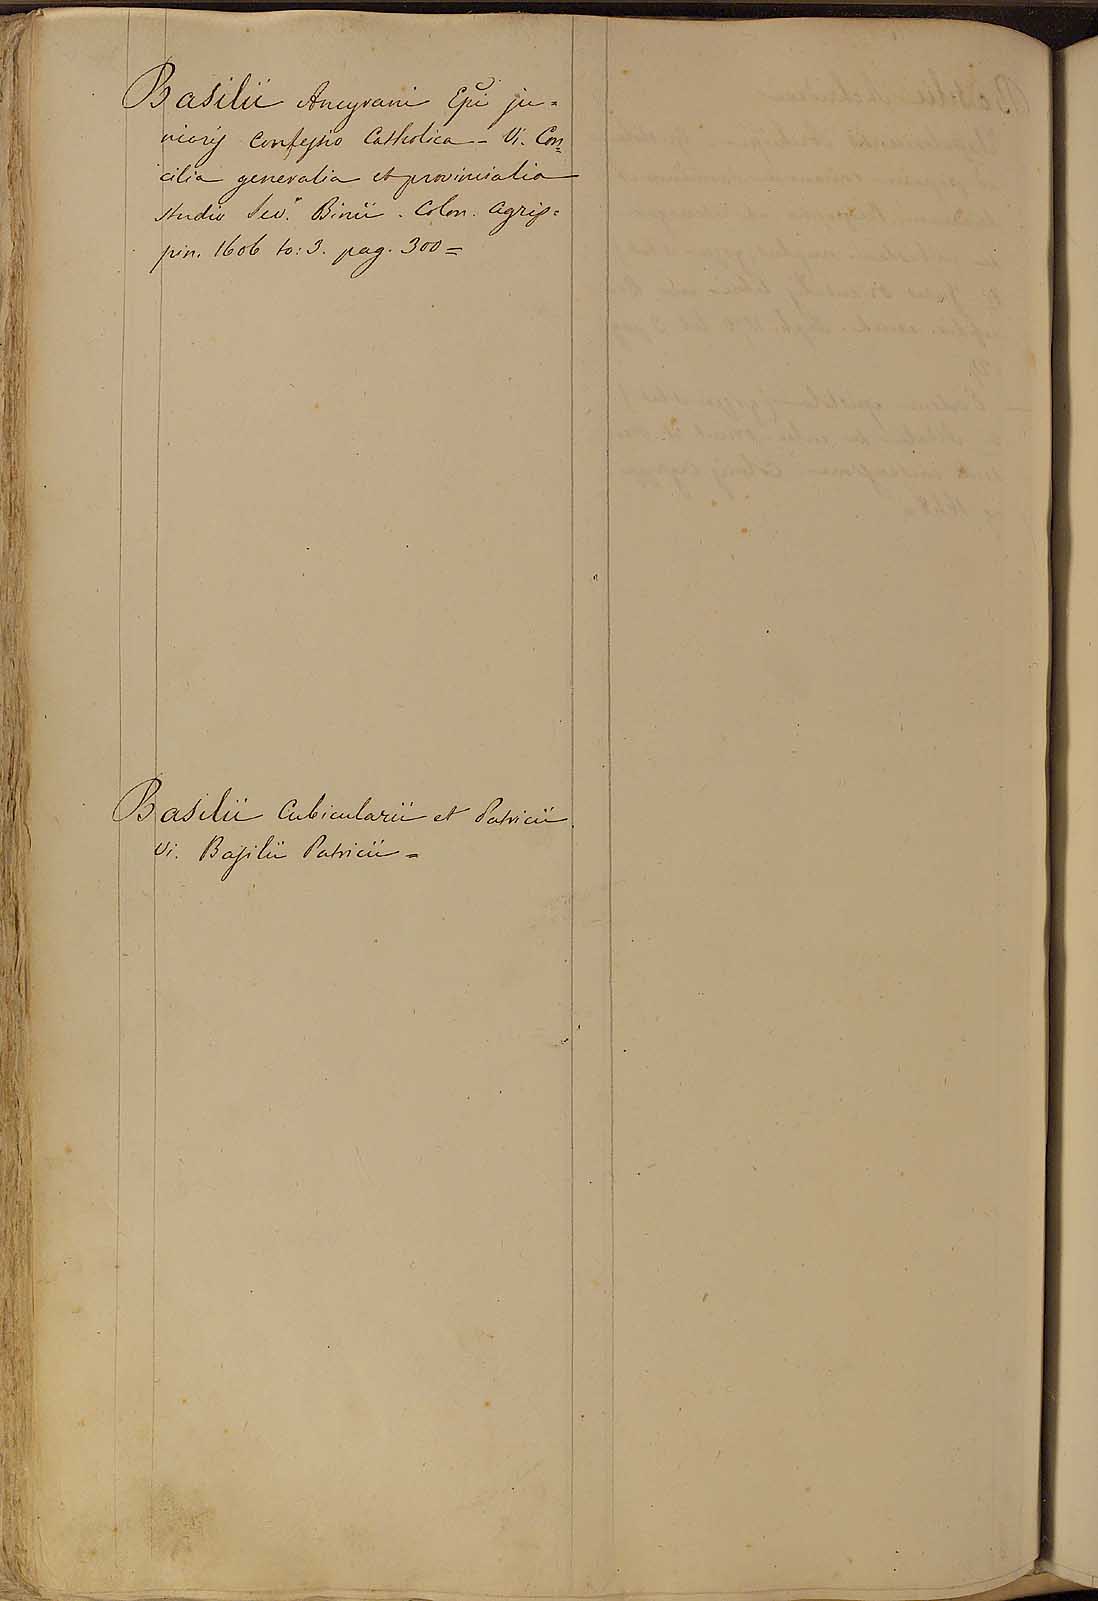 Basilii Ancyrani Epi ju=
nioris Confessio Catholica - Vi. Con=
cilia generalia et provincialia
studio Sev. Binii. Colon. Agrip=
pin. 1606 to: 3. pag. 300=
Basilii Cubicularii et Patricii
Vi. Basilii Patricii=